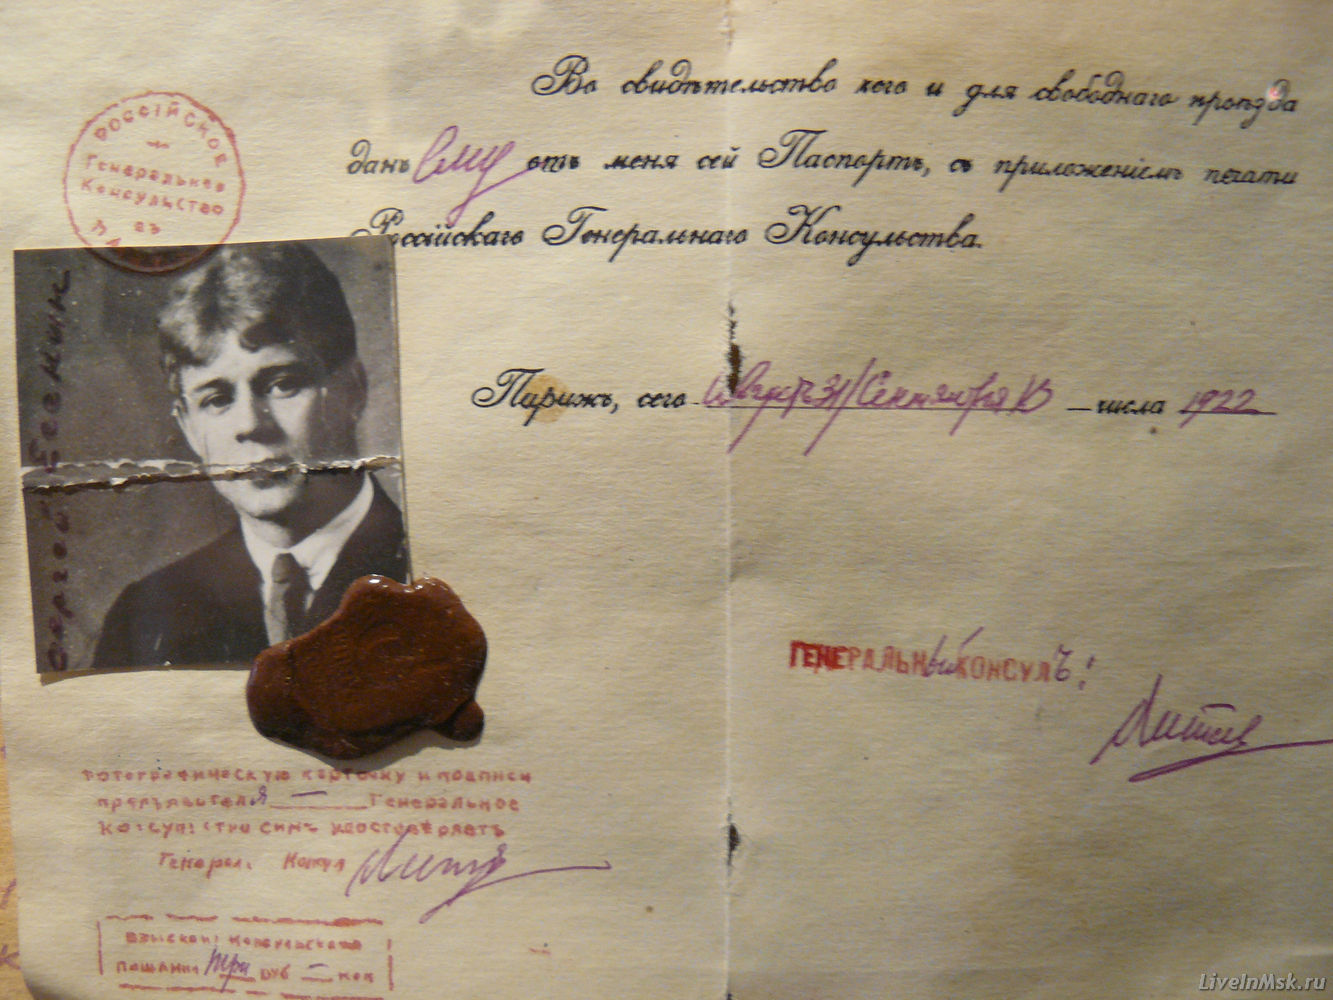 Во свидѣтельство чего и для свободнаго проѣзда
данъ ему отъ меня сей Паспортъ, съ приложеніемъ печати
Россійскаго Генеральнаго Консульства.
РОССІЙСКОЕ
Генеральное
Консульство
въ
Сергей Есенин
Парижъ, сего Август 31/Сентября 13 числа 1922
ГЕНЕРАЛЬНЫЙ КОНСУЛЪ:
Фотографическую карточку и подписи
предъявителя — Генеральное
Консульство симъ удостоверяетъ
Генерал. Консул
Взыскано консульской
пошлины три руб — коп
LiveInMsk.ru